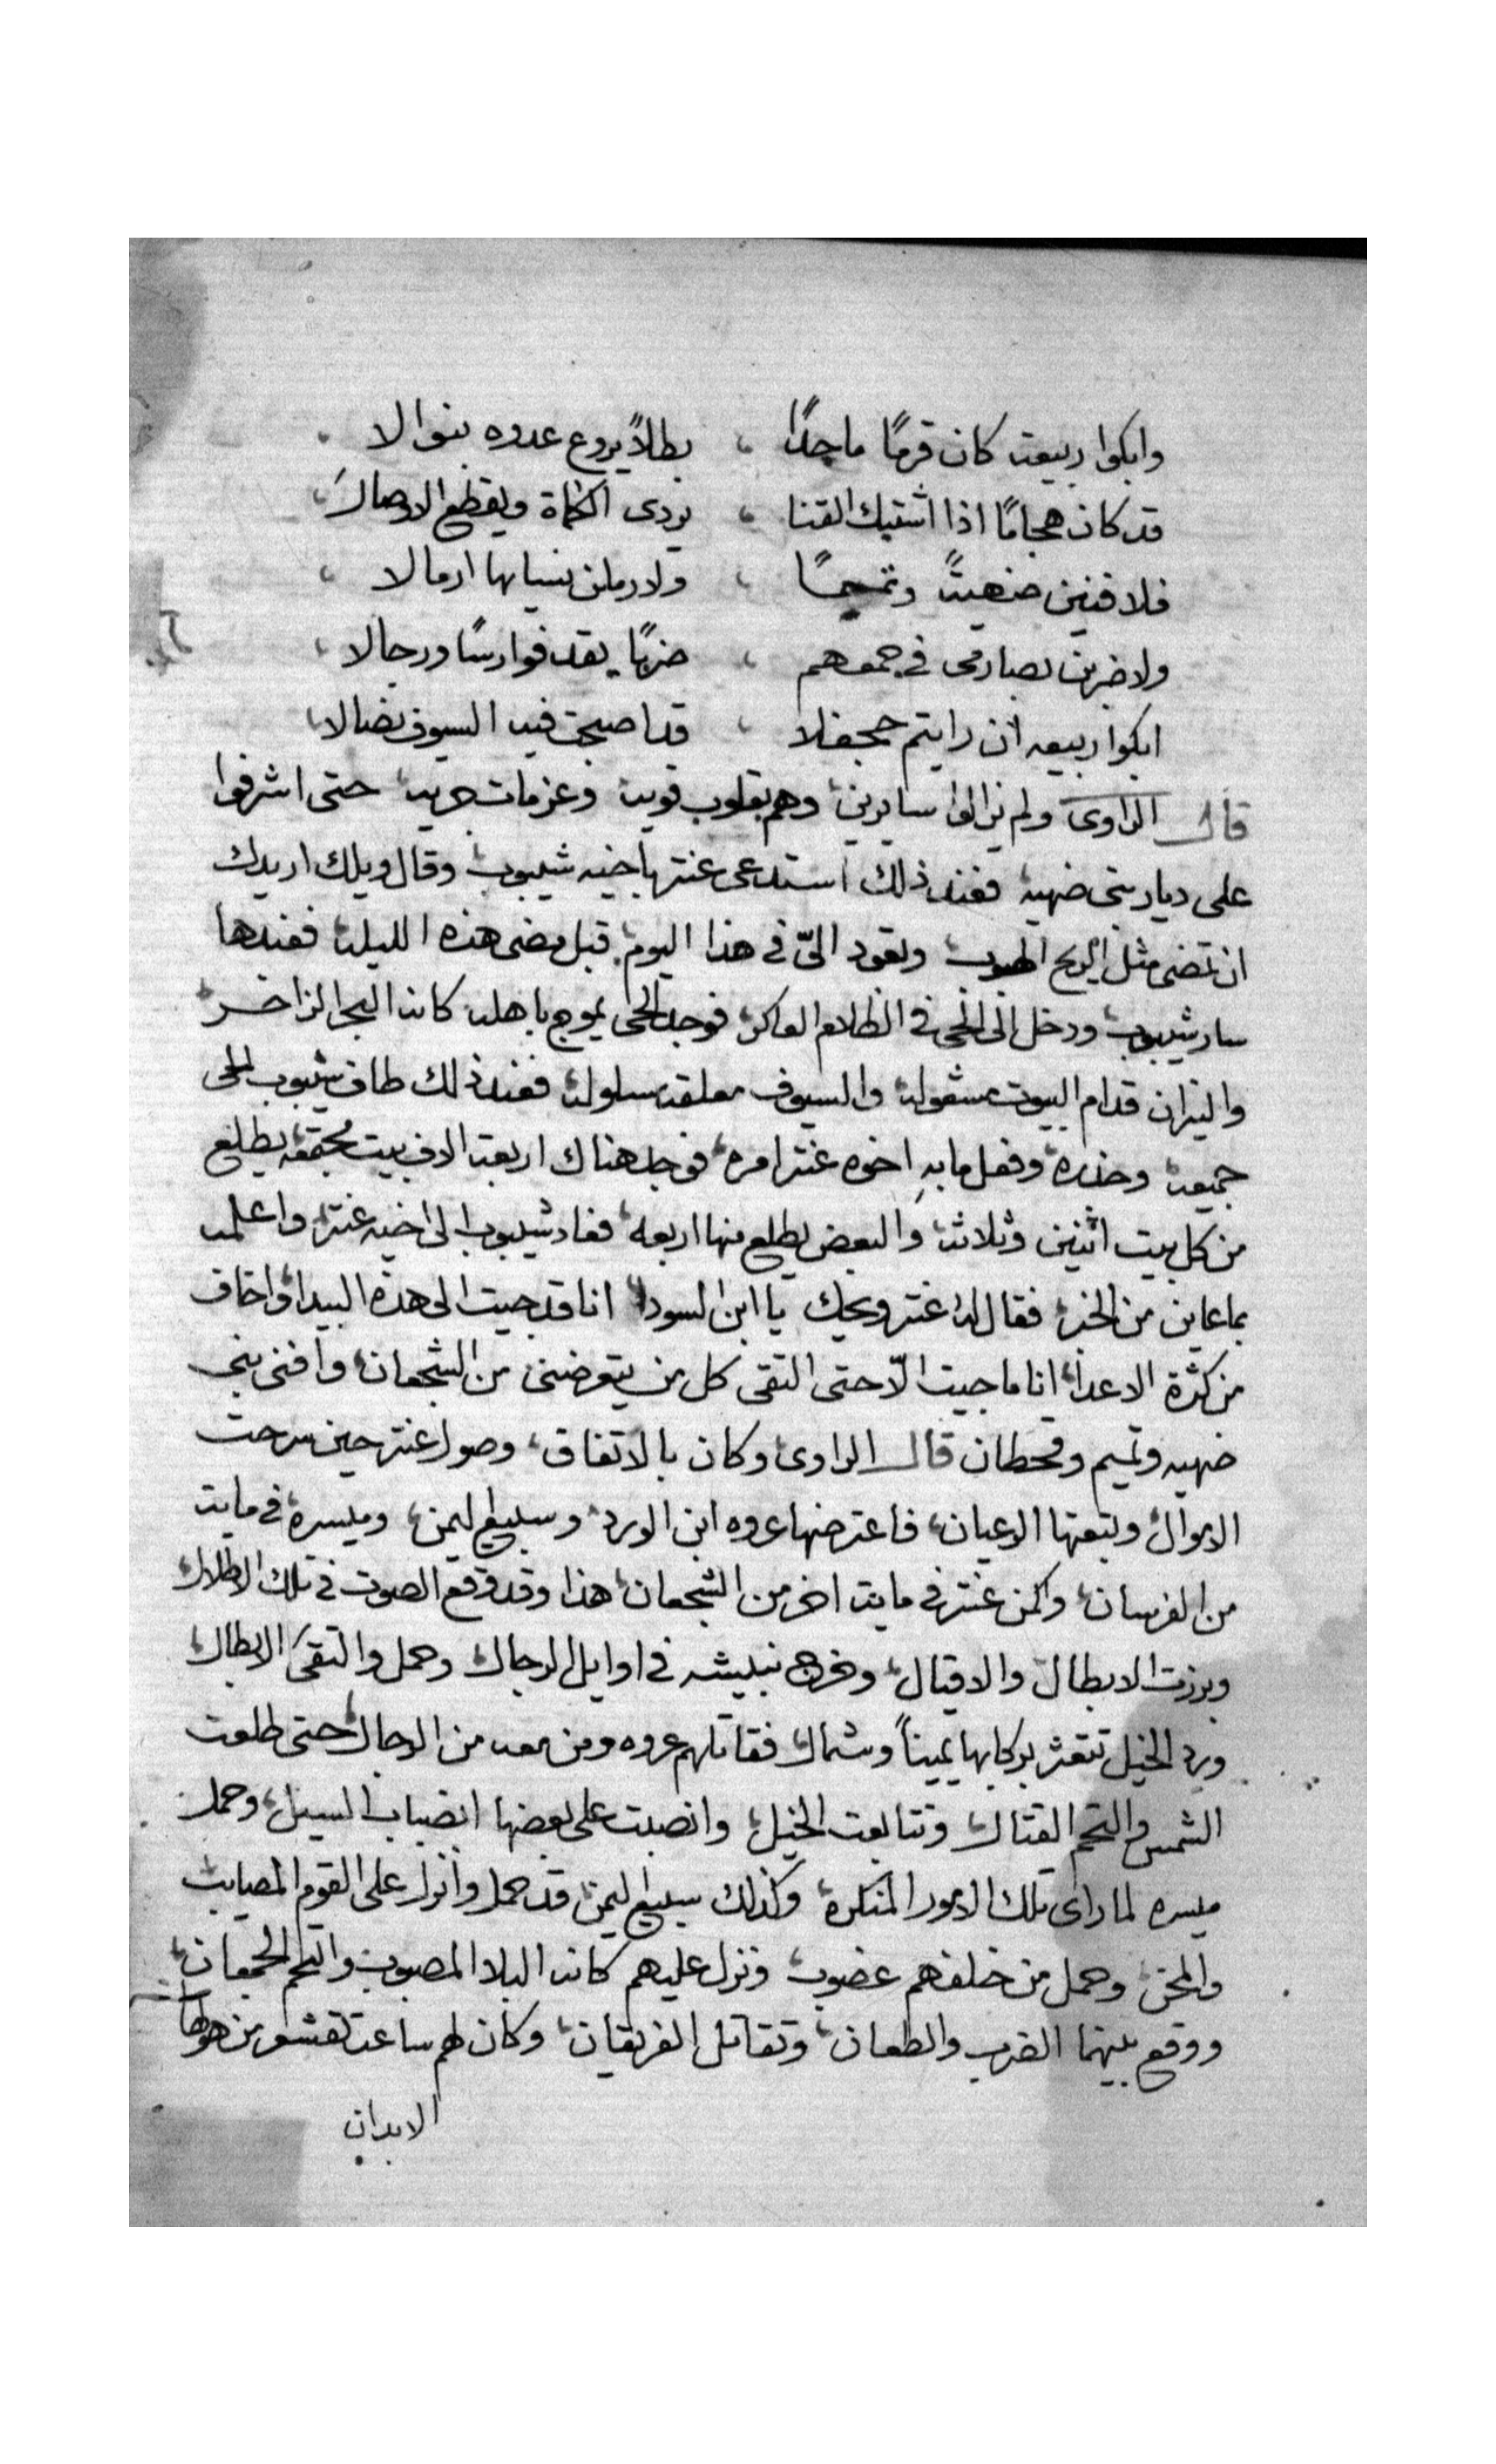 وابكوا ربيعة كان قرمًا ماجدًا ، بطلاً يروع عدوه بنوالا ،
قد كان هجامًا اذا اشتبك القنا ، يردى الكماة ويقطع الاوصال ،
فلافنين ضهيةً وتميمًا ، ولارملن نسيانها ارمالا ،
ولاضربن بصارمى فى جمعهم ، ضربًا يقد فوارسًا ورجالا ،
ابكوا ربيعه ان رايتم جحفلا ، قد اصبحت فيه السيوف نضالا ،
قال الراوى ولم يزالوا سايرين، وهم بقلوب قوية وعزمات جرية، حتى اشرفوا
على ديار بنى ضهية، فعند ذلك استدعى عنتر باخيه شيبوب، وقال ويلك اريدك
ان تمضى مثل الريح الهبوب، وتعود الىّ فى هذا اليوم، قبل مضى هذه الليلة، فعندها
سار شيبوب، ودخل الى الحى فى الظلام العاكر، فوجد الحى يموج باهله كانه البحر الزاخر
والنيران قدام البيوت مشعولة، والسيوف معلقة مسلولة، فعند ذلك طاف شيبوب الحى
جميعه، وحذره، وفعل ما بهِ اخوه عنتر امره، فوجد هناك اربعة الاف بيت مجتمعة، يطلع
من كل بيت اثنين وثلاثة، والبعض يطلع منها اربعه، فعاد شيبوب الى اخيه عنتر، واعلمه
بما عاين من الخبر، فقال له عنتر ويحك يا ابن السودا، انا قد جيت الى هذه البيدا، واخاف
من كثرة الاعدا، انا ما جيت الّا حتى التقى كل من يتعرضنى من الشجعان، وافنى بنى
ضهيه وتميم وقحطان قال الراوى، وكان بالاتفاق، وصول عنتر حين سرحت
الاموال، وتبعتها الرعيان، فاعترضها عروه ابن الورد، وسبيع اليمن، وميسره، فى ماية
من الفرسان، واكمن عنتر فى ماية اخر من الشجعان، هذا وقد وقع الصوت فى تلك الاطلال،
وبرزت الابطال والاقيال، وخرج نبيشه فى اوايل الرجال، وحمل والتقى الابطال،
ورد الخيل تتعثر بركابها يميناً وشمال، فقاتلهم عروه ومن معه من الرجال، حتى طلعت
الشمس والتحم القتال، وتتابعت الخيل، وانصبت على بعضها انصباب السيل، وحمل
ميسره لما راى تلك الامور المنكرة، وكذلك سبيع اليمن، قد حمل وانزل على القوم المصايب
والمحن، وحمل من خلفهم غضوب، ونزل عليهم كانه البلا المصبوب، والتحم الجمعان،
ووقع بينهما الضرب والطعان، وتقاتل الفريقان، وكان لهم ساعت تقشعر من هولها
الابدان